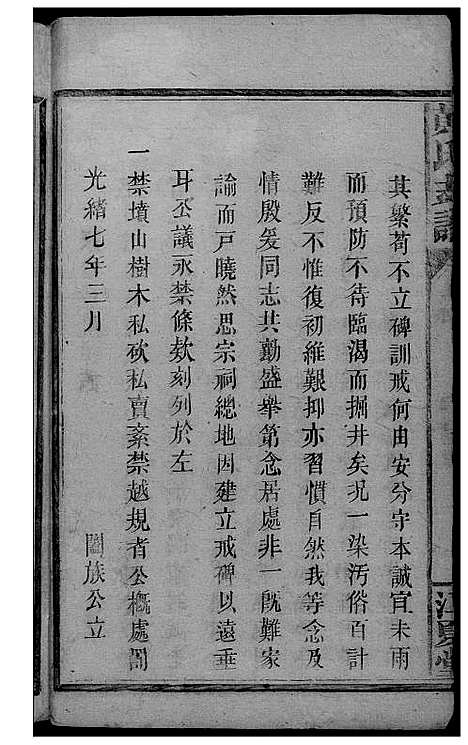 其繁苟不立碑訓戒何由安分守本誠宜未雨
而預防不待臨渴而掘井矣況一染汚俗百計
難反不惟復初維艱抑亦習慣自然我等念及
情殷爰同志共勷盛舉第念居處非一既難家
諭而戶曉然思宗祠總地因建立戒碑以遠垂
耳公議永禁條欵刻列於左
一禁墳山樹木私砍私賣紊禁越規者公概處罰
光緒七年三月　闔族公立
氏
江夏堂